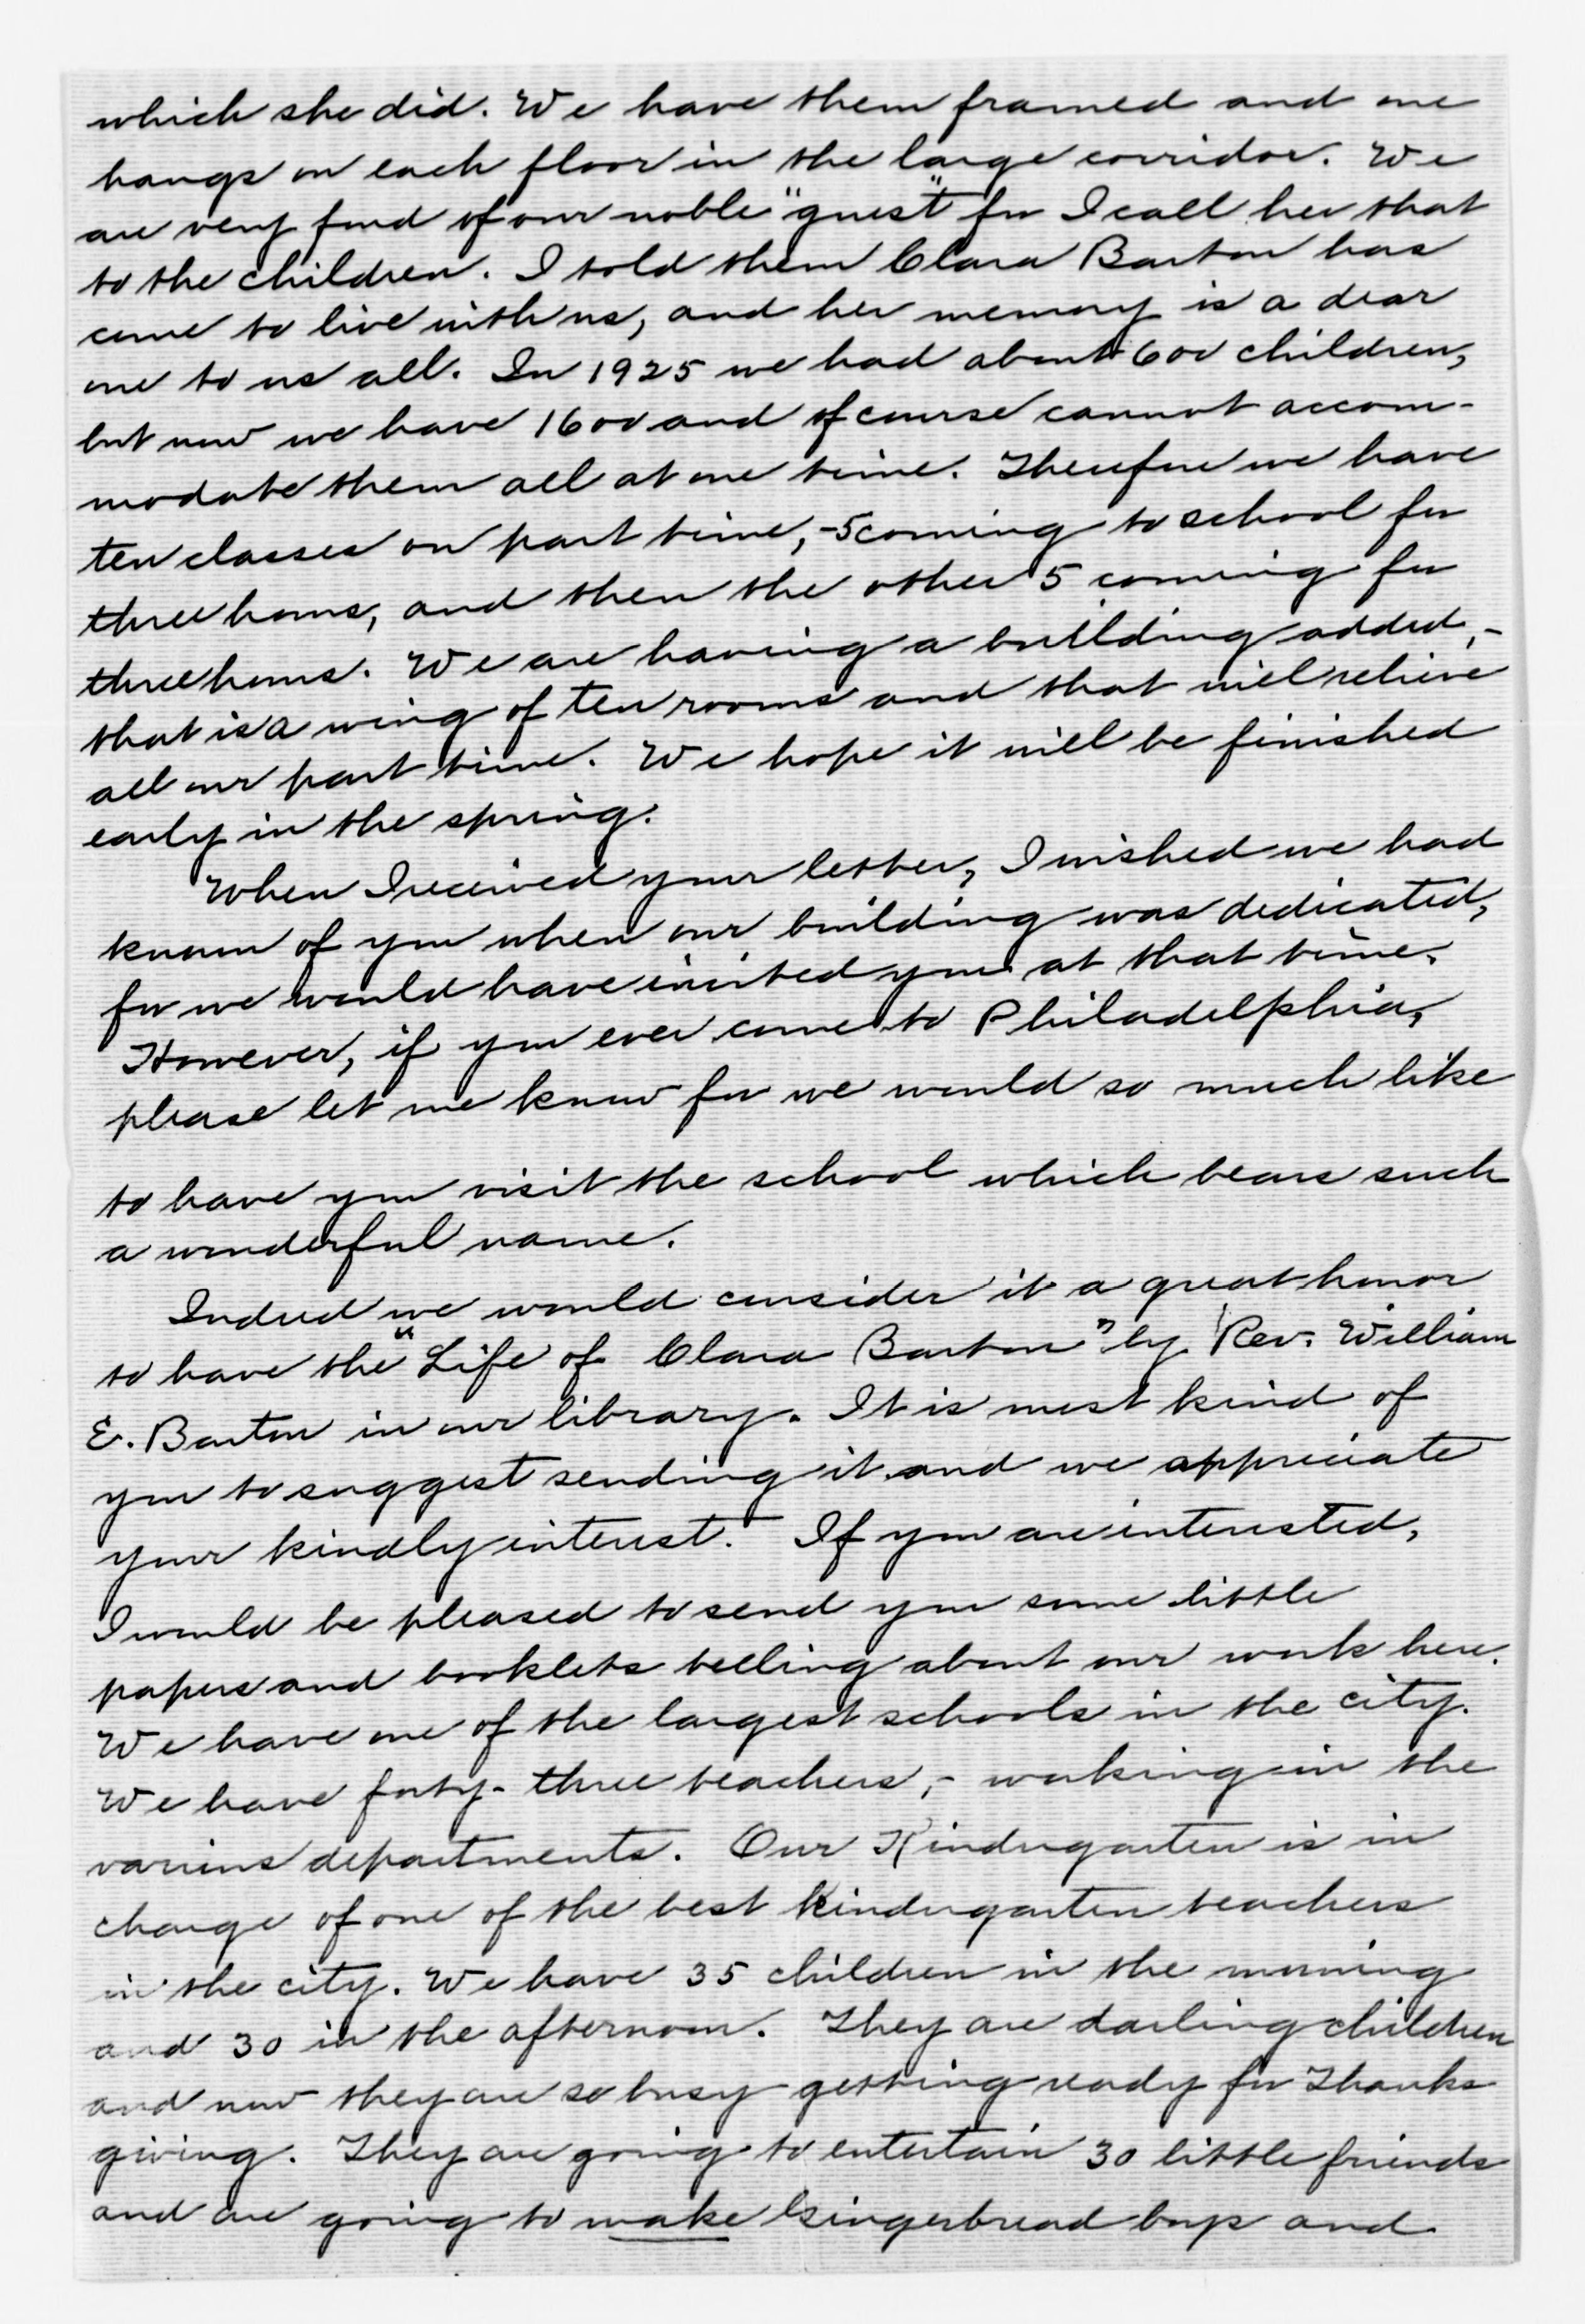 which she did. We have them framed and one
hangs on each floor in the large corridor. We
are very fond of our noble "guest" for I call her that
to the children. I told them Clara Barton has
come to live with us, and her memory is a dear
one to us all. In 1925 we had about 600 children,
but now we have 1600 and of course cannot accom-
modate them all at one time. Therefore we have
ten classes on part time, - 5 coming to school for
three hours, and then the other 5 coming for
three hours. We are having a building added, -
that is a wing of ten rooms and that will relieve
all our part time. We hope it will be finished
early in the spring.
When I received your letter, I wished we had
known of you when our building was dedicated,
for we would have invited you at that time.
However, if you ever come to Philadelphia,
please let me know for we would so much like
to have you visit the school which bears such
a wonderful name.
Indeed we would consider it a great honor
to have the "Life of Clara Barton" by Rev. William
E. Barton in our library. It is most kind of
you to suggest sending it and we appreciate
your kindly interest. If you are interested,
I would be pleased to send you some little
papers and booklets telling about our work here.
We have one of the largest schools in the city.
We have forty-three teachers, - working in the
various departments. Our Kindergarten is in
charge of one of the best kindergarten teachers
in the city. We have 35 children in the morning
and 30 in the afternoon. They are darling children
and now they are so busy getting ready for Thanks
giving. They are going to entertain 30 little friends
and are going to make Gingerbread boys and